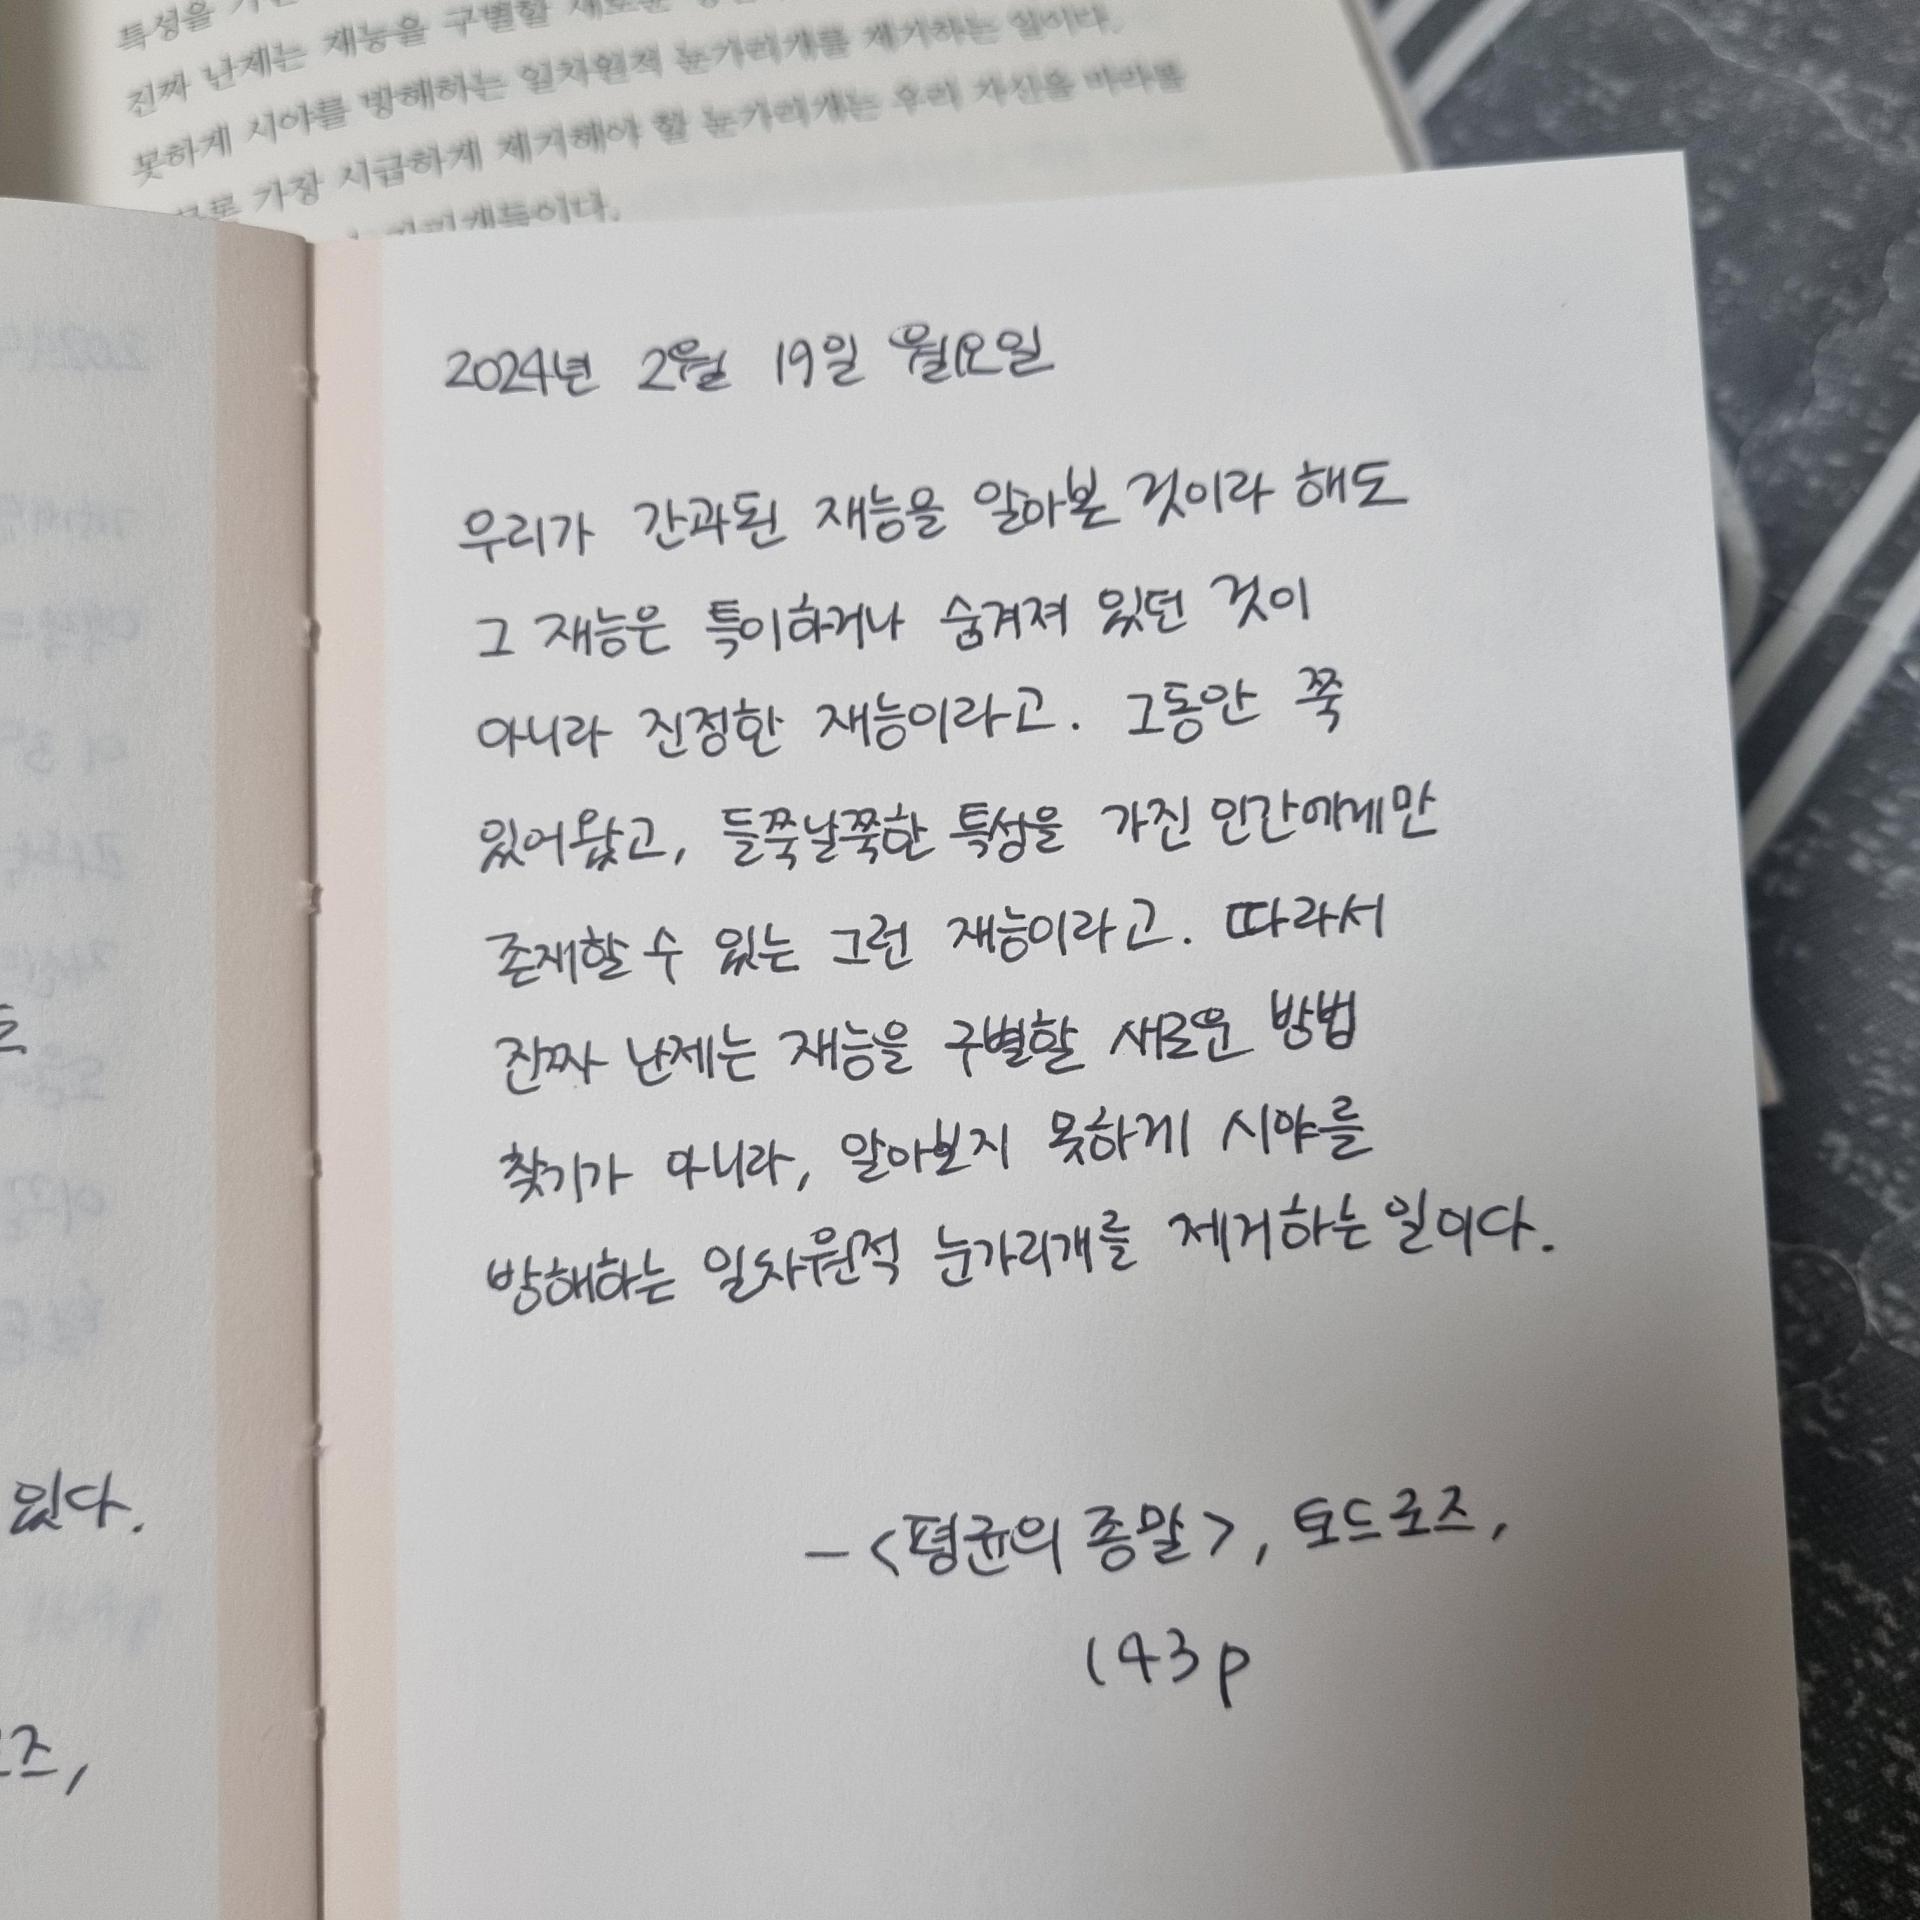 특성을
진짜 난제는 재능을 구별할 새로운
못하게 시야를 방해하는 일차원적 눈가리개를 제거하는 일이다.
가장 시급하게 제거해야 할 눈가리개는 우리 자신을 바라볼
2024년 2월 19일 월요일
우리가 간과된 재능을 알아본 것이라 해도
그 재능은 특이하거나 숨겨져 있던 것이
아니라 진정한 재능이라고. 그동안 쭉
있어왔고, 들쭉날쭉한 특성을 가진 인간에게만
존재할 수 있는 그런 재능이라고. 따라서
진짜 난제는 재능을 구별할 새로운 방법
찾기가 아니라, 알아보지 못하게 시야를
방해하는 일차원적 눈가리개를 제거하는 일이다.
- <평균의 종말>, 토드 로즈,
143p
있다.